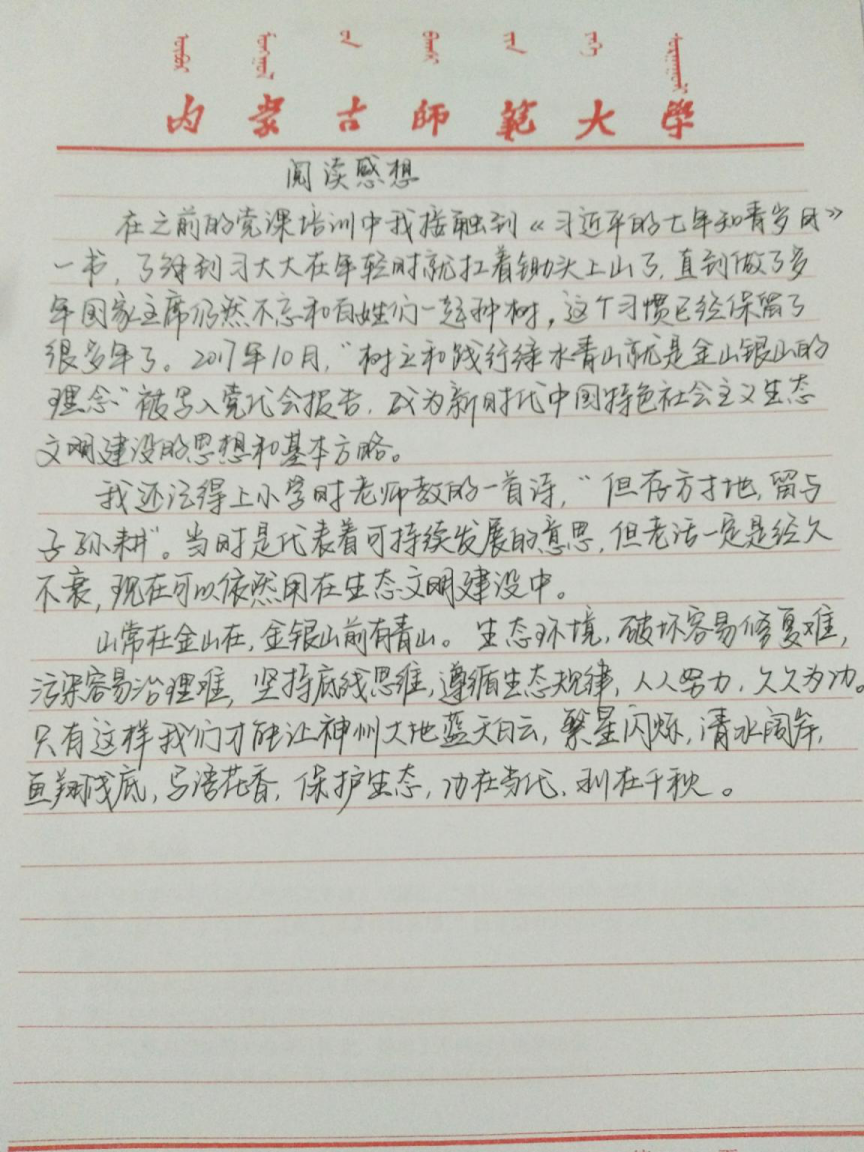 内蒙古师范大学
阅读感想
在之前的党课培训中我接触到《习近平的七年知青岁月》
一书，了解到习大大在年轻时就扛着锄头上山了，直到做了多
年国家主席仍然不忘和百姓们一起种树，这个习惯已经保留了
很多年了。2017年10月，“树立和践行绿水青山就是金山银山的
理念”被写入党代会报告，成为新时代中国特色社会主义生态
文明建设的思想和基本方略。
我还记得上小学时老师教的一首诗，“但存方寸地，留与
子孙耕”。当时是代表着可持续发展的意思，但老话一定是经久
不衰，现在可以依然用在生态文明建设中。
山常在金山在，金银山前有青山。生态环境，破坏容易修复难，
污染容易治理难，坚持底线思维，遵循生态规律，人人努力，久久为功。
只有这样我们才能让神州大地蓝天白云，繁星闪烁，清水闹岸，
鱼翔浅底，鸟语花香，保护生态，功在当代，利在千秋。